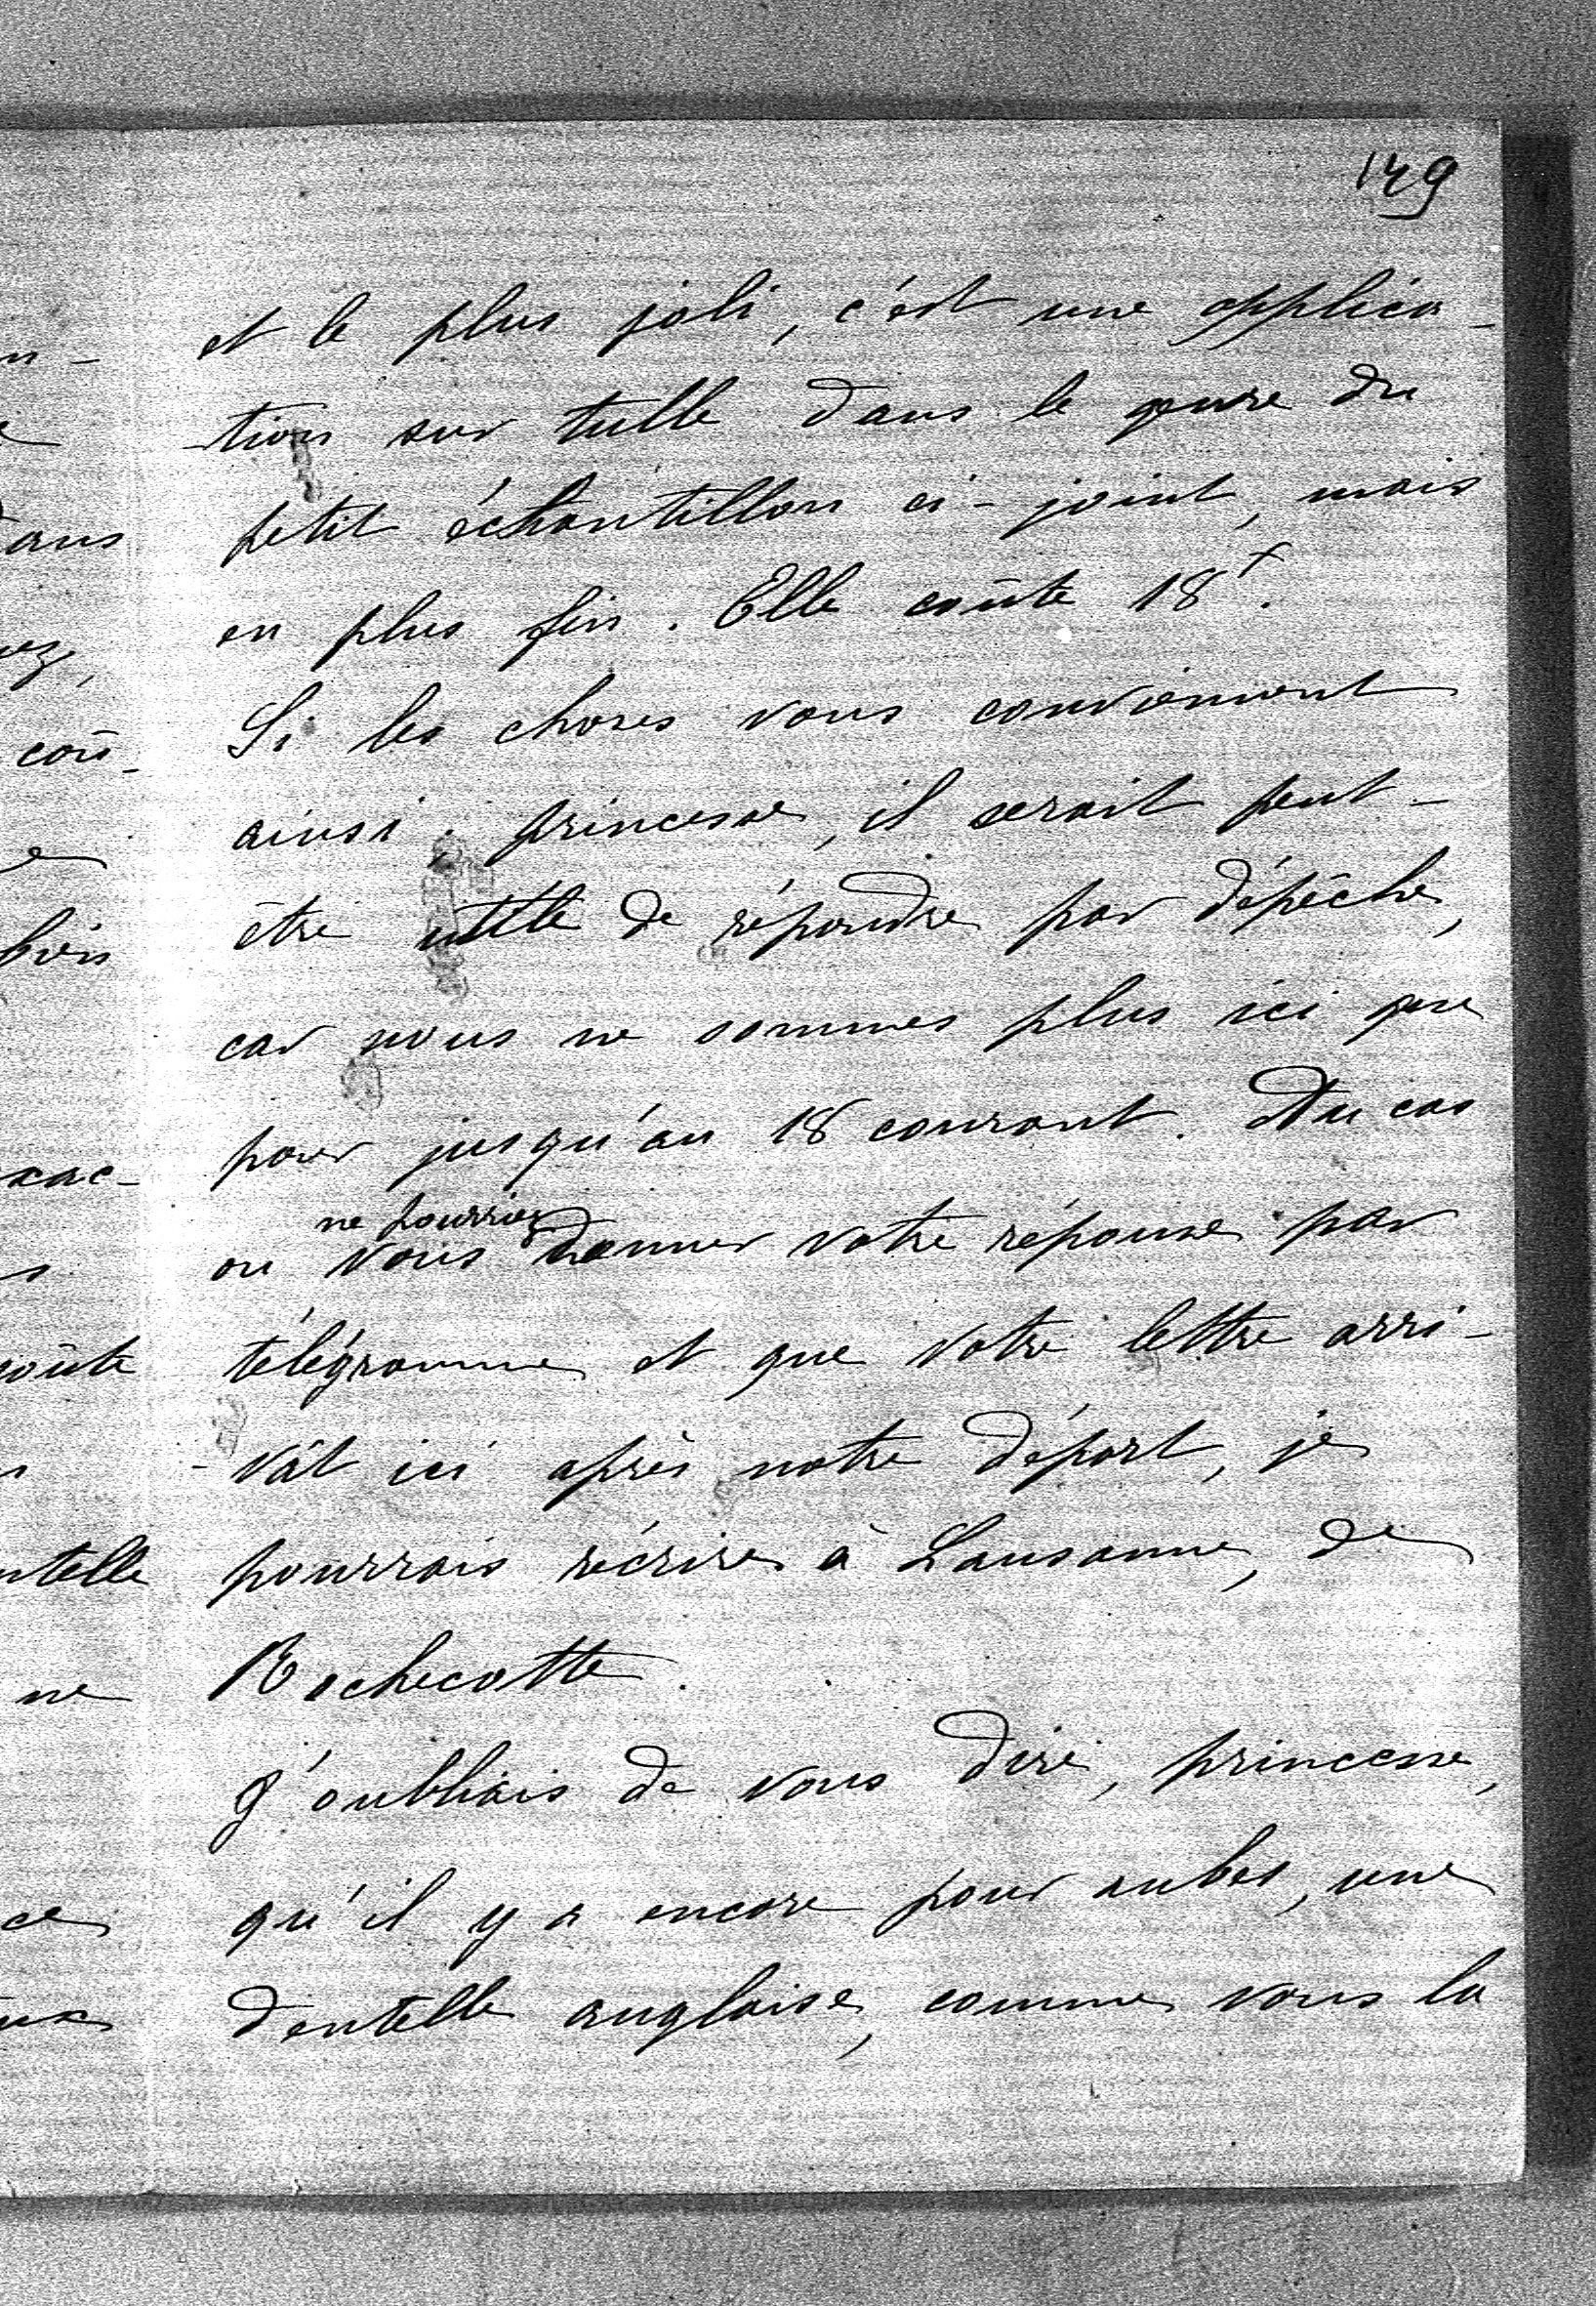 149
et le plus joli, c'est une applica-
-tion sur tulle dans le genre du
petit échantillon ci-joint, mais
en plus fin. Elle coûte 18f.
Si les choses vous conviennent
ainsi, princesse, il serait peut-
être utile de répondre par dépêche,
car nous ne sommes plus ici que
pour jusqu'au 18 courant. Au cas
ne pourriez
ou vous donner votre réponse par
télégramme et que votre lettre arri-
-vât ici après notre départ, je
pourrais récrire à Lausanne, de
Rochecotte.
J'oubliais de vous dire, princesse,
qu'il y a encore pour aubes, une
dentelle anglaise, comme vous la